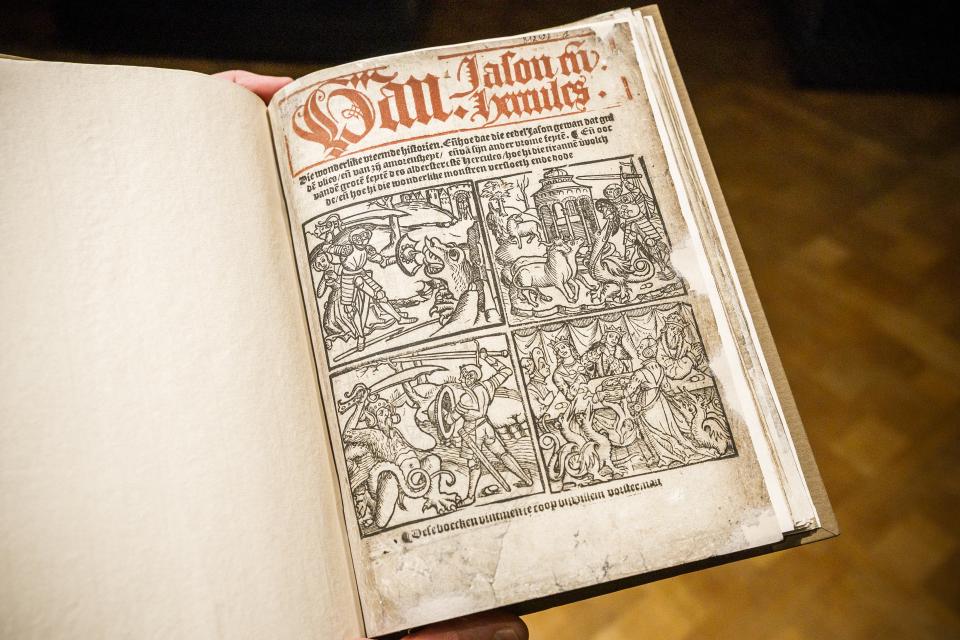 Van Jason eñ
Hercules.
Die wonderlike vreemde historien. Eñ hoe dat die eedel Jason gewan dat gul
dē vlies/ eñ van zȳ amoreusheyt/ eñ vā sijn ander vrome feytē. ¶ Eñ ooc
vandē grotē feytē des alderstercstē Hercules/ hoe hi die tirannē vvolch
de/ eñ hoe hi die wonderlike monstren versloech ende dode
¶ Dese boecken vintmen te coop bi Willem vorsterman